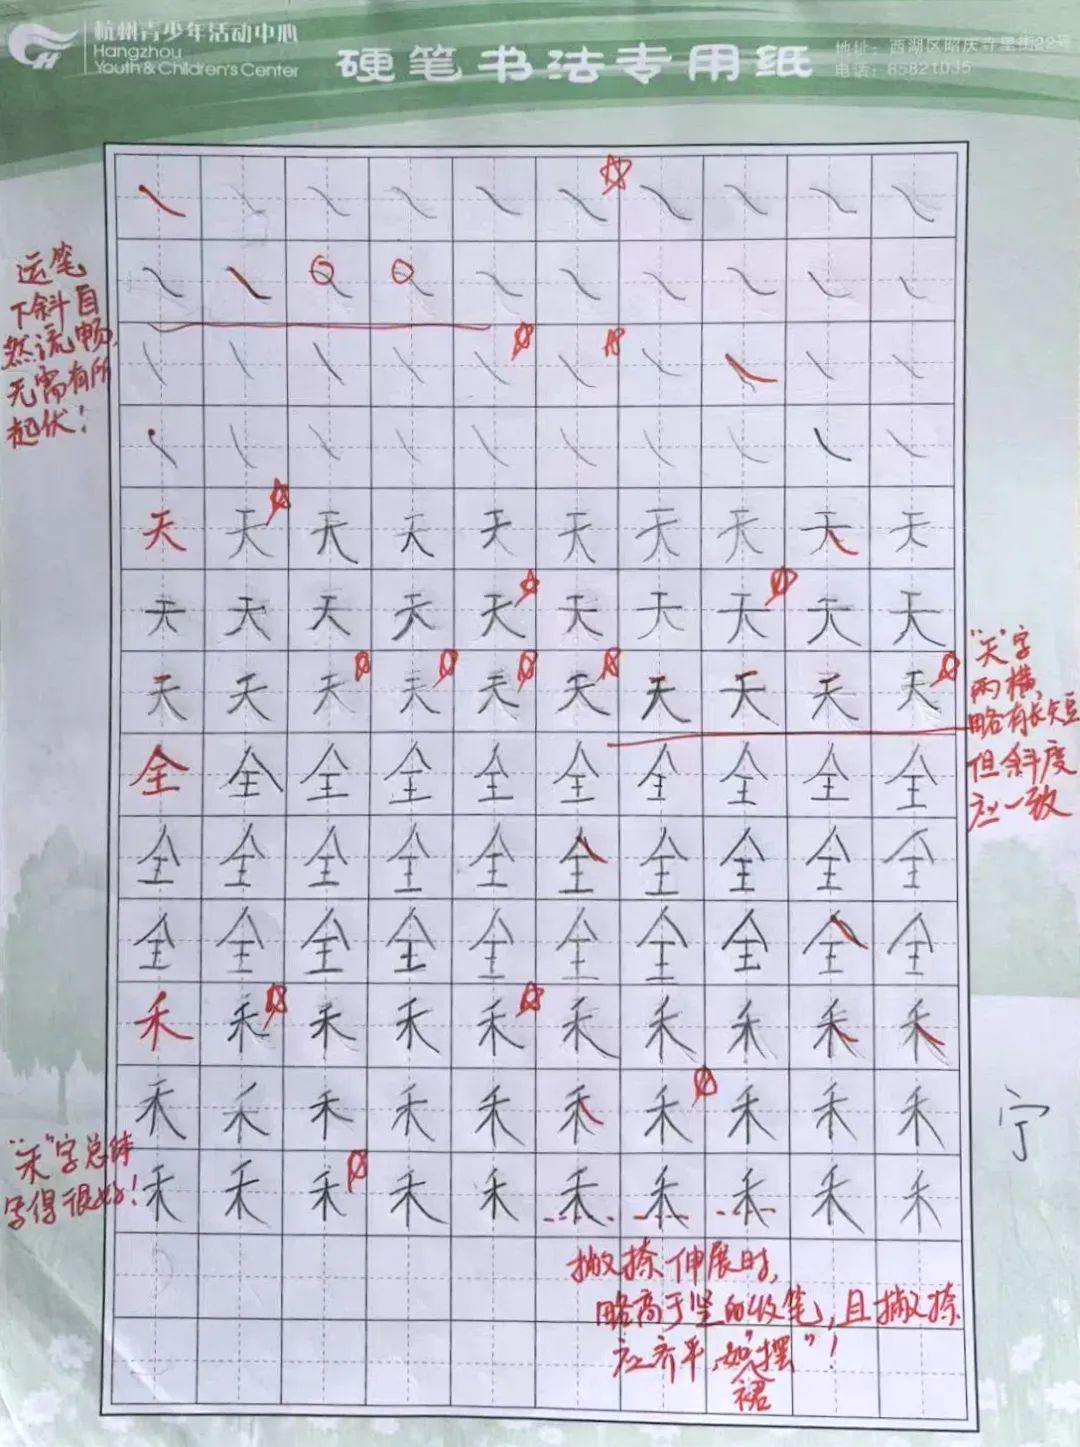 杭州青少年活动中心
Hangzhou
Youth & Children's Center
硬笔书法专用纸
地址：西湖区昭庆寺里街22号
电话：85821035
运笔
下斜自
然流畅，
无需有所
起伏！
天天天天天天天天天天
天天天天天天天天天天
天天天天天天天天天天
"天"字
两横，
略有长短
但斜度
应一致
全全全全全全全全全全
全全全全全全全全全全
全全全全全全全全全全
禾禾禾禾禾禾禾禾禾禾
禾禾禾禾禾禾禾禾禾禾
宁
"禾"字总体
写得很好！
禾禾禾禾禾禾禾禾禾禾
撇捺伸展时，
略高于竖的收笔，且撇捺
应齐平，如"裙摆"！